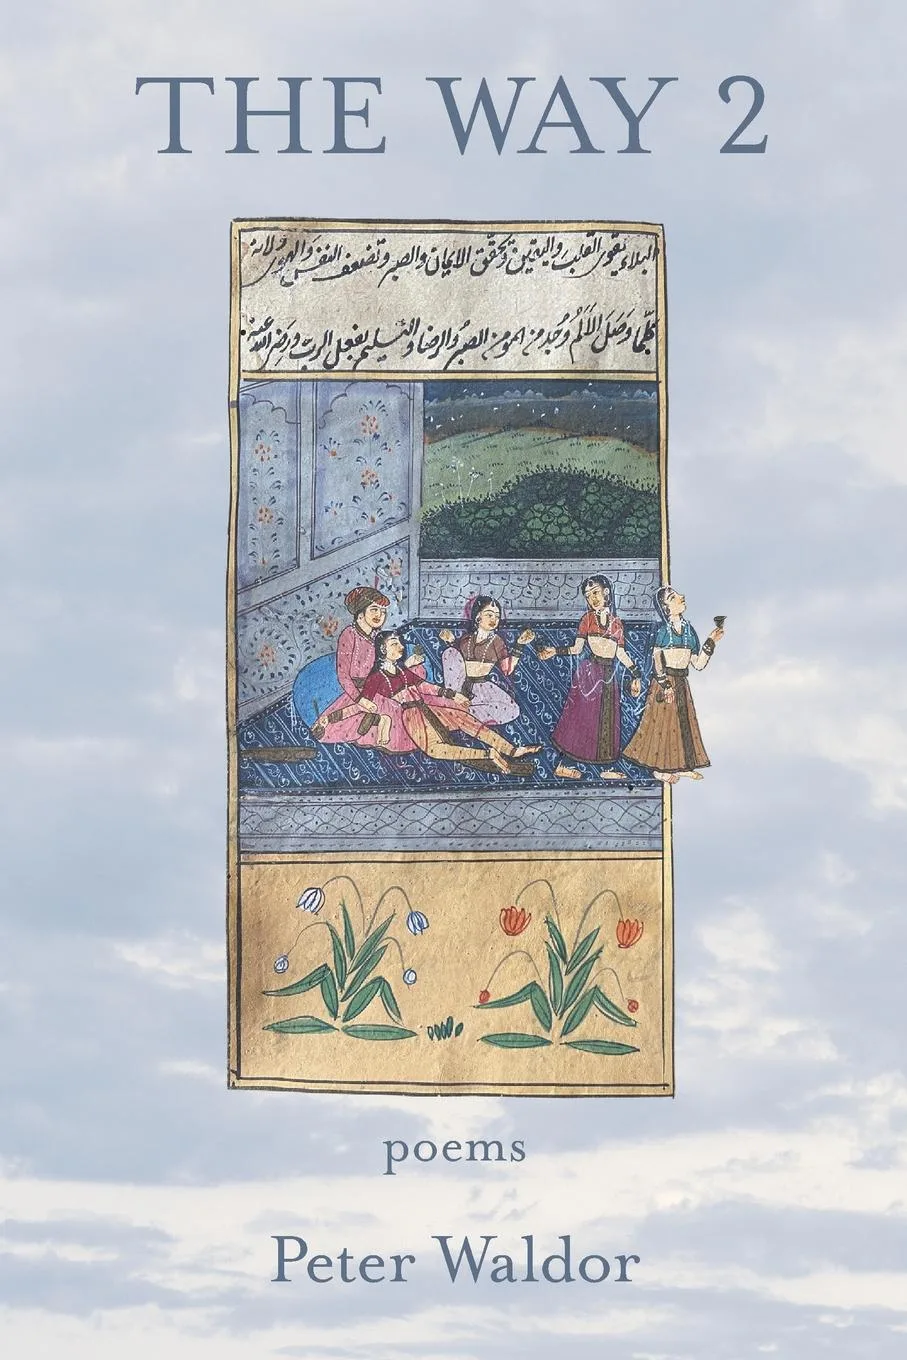 THE WAY 2
البلاء يقوى القلب واليقين وتحقق الايمان والصبر وتضعف النفس والهوى ولانه
كلما وصل الألم وجد من المومن الصبر والرضا والتسليم بفعل الرب ورضى الله عنه
poems
Peter Waldor